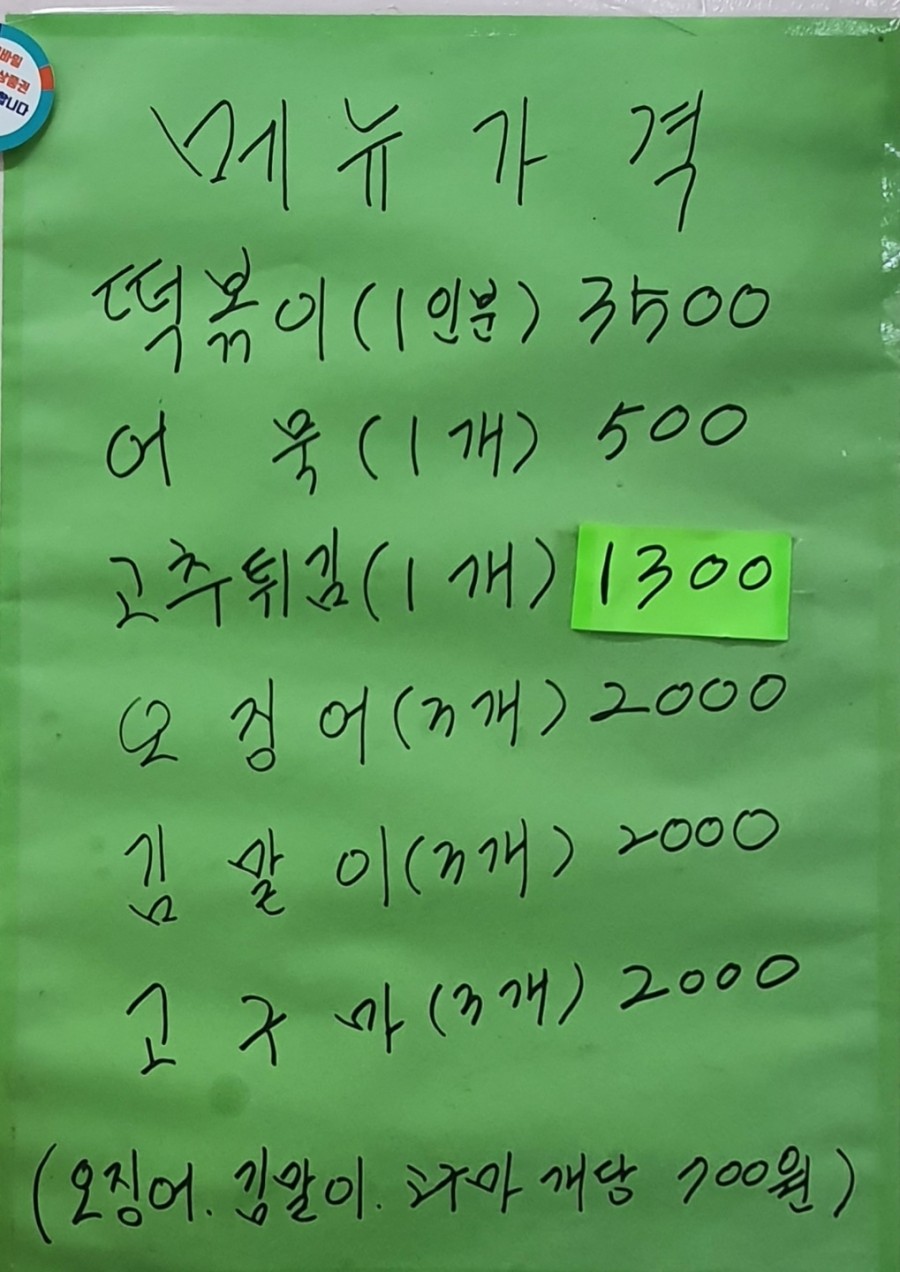 바일
상품권
합니다
메뉴 가격
떡볶이(1인분) 3500
어 묵(1개) 500
고추튀김(1개) 1300
오 징 어(3개) 2000
김 말 이(3개) 2000
고 구 마(3개) 2000
(오징어. 김말이. 고구마 개당 700원)